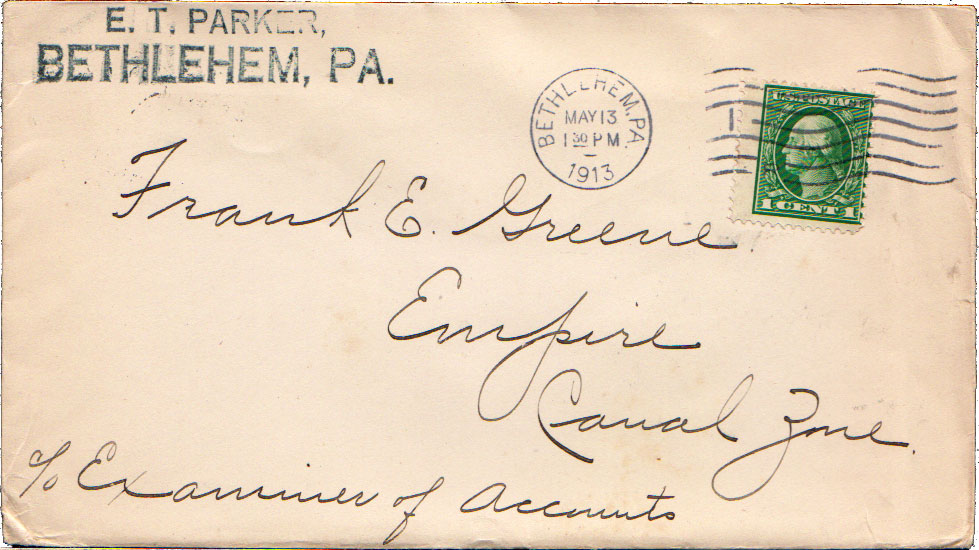 E. T. PARKER,
BETHLEHEM, PA.
BETHLEHEM, PA.
MAY 13
1 30 PM
1913
U.S. POSTAGE
1 CENT 1
Frank E. Greene
Empire
Canal Zone.
c/o Examiner of Accounts